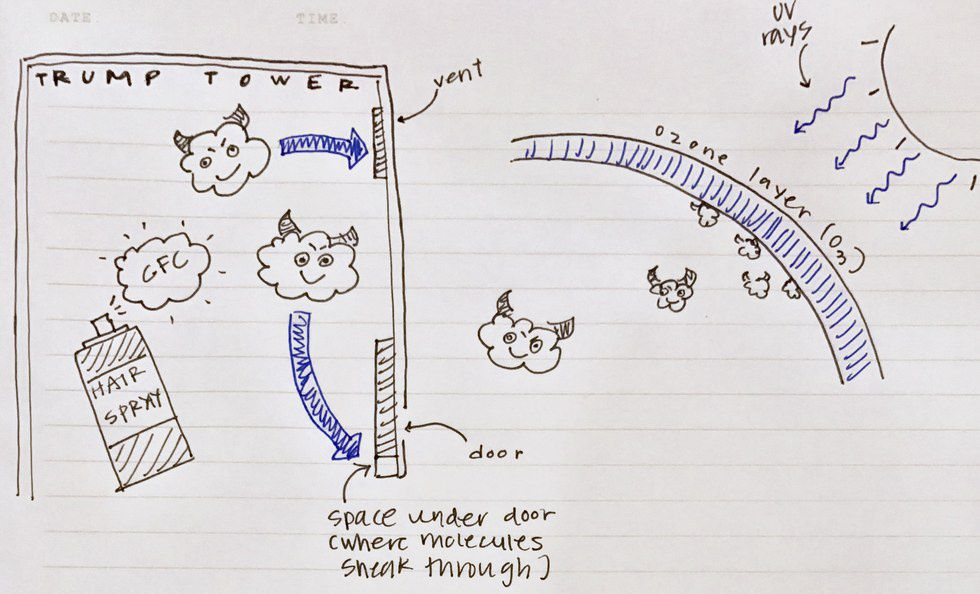 DATE.
TIME.
TRUMP TOWER
vent
UV
rays
ozone layer (O3)
CFC
HAIR
SPRAY
door
space under door
(where molecules
sneak through)